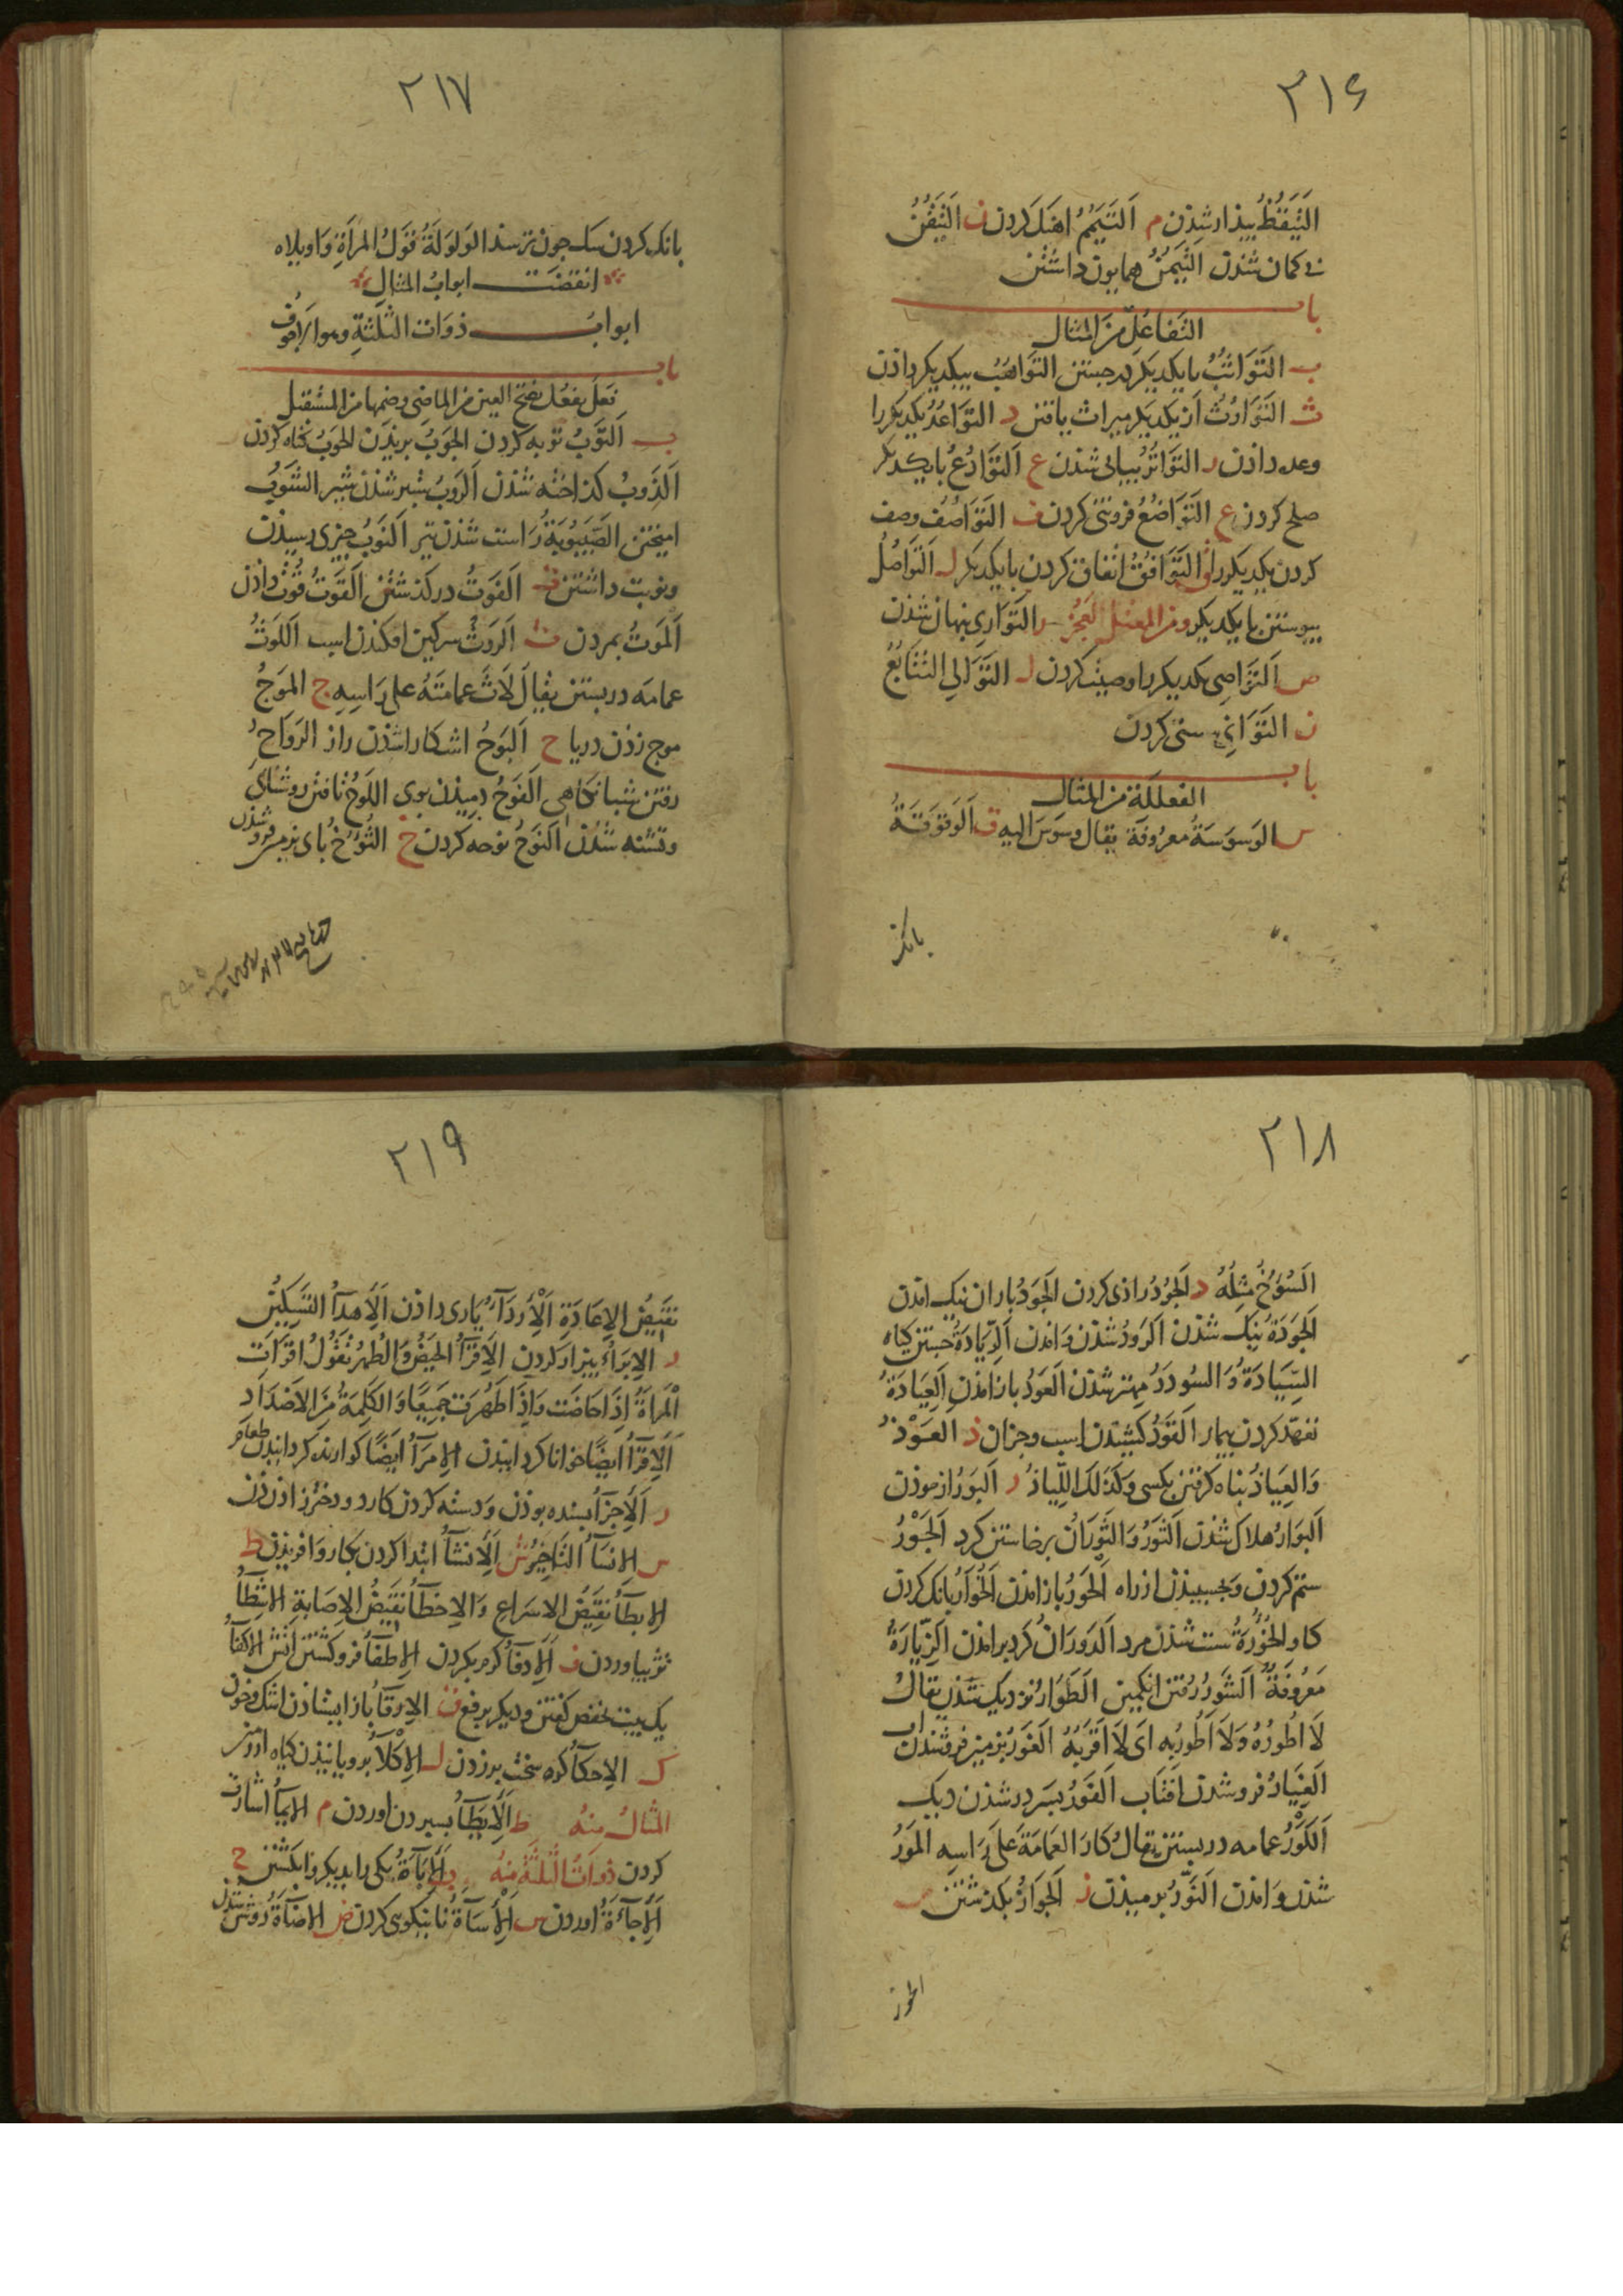 ۲۱۶
التَيَقُّظُ بيذار شذن م اَلتَيَمُّمُ اهنك كردن ن التَيَقُّنُ
بی كمان شذن التَيَمُّنُ همايون داشتن
باب
التفاعُل من المثال
ب التَوَاثُبُ بايكديكر برجستن التَوَاهُبُ بيكديكر داذن
ث التَوَارُثُ از يكديكر ميراث يافتن د التَوَاعُدُ يكديكر را
وعده داذن ر التَوَاتُرُ بيابى شذن ع اَلتَوَادُعُ بايكديكر
صلح كردن ع التَوَاضُعُ فروتنى كردن ف التَوَاصُفُ وصف
كردن يكديكر را ق التَوَافُقُ اتفاق كردن بايكديكر ل اَلتَوَاصُلُ
بيوستن بايكديكر ومن المعتل العجز ر التَوَارِى بنهان شذن
ص اَلتَوَاصِى يكديكر را وصيت كردن ل التَوَالِى التَتَابُعُ
ن التَوَانِى سستى كردن
باب
الفعللة من المثال
س الوَسوَسَةُ معرُوفَة يقال وسوَسَ اليه ق اَلوَقوَقَةُ
بانك
۲۱۷
بانك كردن سك جون ترسد الوَلوَلَةُ قَولُ المَرأةِ وَاويلاه
انقضت ابوابُ المثالِ
ابوابُ ذوَات الثلثةِ وهو الاجوف
باب
فعَل يفعُل بفتح العين من الماضى وضمها من المستقبل
ب اَلتَوبُ توبه كردن الجَوبُ بريذن الحَوبُ كناه كردن
اَلذَوبُ كذاخته شذن اَلرَوبُ ستبر شذن شير الشَوبُ
اميختن الصَيبُوبَةُ راست شذن تير اَلنَوبُ جيزى رسيذن
ونوبت داشتن ت اَلفَوتُ دركذشتن اَلقَوتُ قوت داذن
اَلمَوتُ بمردن ث اَلرَوثُ سركين افكندن اسب اَللَوثُ
عمامَه دربستن يقالَ لَاثَ عمامَتَهُ على رَاسِهِ ج المَوجُ
موج زذن دريا ح اَلبَوحُ اشكارا شذن راز الرَوَاحُ
رفتن شبانكاهى اَلفَوحُ دميذن بوى اللَوحُ تافتن روشناى
وتشنه شذن اَلنَوحُ نوحه كردن خ الثَوخُ باى بزمين فروشذن
۲۱۸
اَلسُؤُخُ مِثلُهُ د اَلجُودُ راذى كردن اَلجَودُ باران نيك امذن
اَلجَودَةُ نيك شذن اَلرَودُ شذن وَامذن اَلرِّيَادَةُ جستن كياه
السِّيَادَةُ وَالسُودَدُ مهتر شذن اَلعَودُ باز امذن اَلعِيَادَةُ
تعهد كردن بيمار اَلقَودُ كشيذن اسب وجزان ذ العَوْذُ
وَالعِيَاذُ بناه كرفتن بكسى وَكذلكَ اللِّيَاذُ ر اَلبَورُ ازموذن
اَلبَوَارُ هلاك شذن اَلثَورُ وَالثَوَرَانُ برخاستن كرد اَلجَوْرُ
ستم كردن وَبجسبيذن از راه اَلحَورُ باز امذن اَلخُوَارُ بانك كردن
كاو الخُؤُرَةُ سست شذن مرد اَلدَوَرَانُ كرد برامذن اَلزِّيَارَةُ
مَعرُوفَةٌ اَلشَورُ رفتن انكبين الطَوَارُ نزديك شذن يقالُ
لَا اَطُورُهُ وَلَا اَطُورُبِه اَى لَا اَقرَبُهُ اَلغَورُ بزمين فروشذن اب
اَلغِيَارُ فروشدن افتاب اَلفَورُ بسر در شذن ديك
اَلكَوْرُ عمامه دربستن يقالُ كَارَ العمَامَةَ عَلَى رَاسِهِ المَورُ
شذن وَامذن اَلنَوْرُ برميذن ز اَلجَوَازُ بكذشتن س
الحوز
۲۱۹
نقيَضُ الاِعَادَةِ اَلْاِردَآءُ يَارى داذن اَلْاِهدَآءُ التسَكِينُ
ر الاِبرَاءُ بيزار كردن اَلاِقرَآءُ الحَيضُ وَالطُهرُ تَقُولُ اقرَاَتِ
اْلمَراَةُ اِذَا حَاضَت وَاِذَا طَهُرَت جَميعًا وَالكلِمَةُ مِنَ الاَضدَادِ
اَلاِقرَآءُ ايضًا خوانا كردانيذن الاِمرَآءُ ايضًا كوارنده كردانيذن طعام
ز اَلاِجزَآءُ بسنده بوذن وَدسته كردن كارد ودختر زاذن زن
س الاِنسَآءُ التَاخِيرُ ش اَلاِنشَآءُ ابتدا كردن بكار وَافريذن ط
الاِبطَآءُ نقيَضُ الاِسرَاعِ وَالاِخطَآءُ نقيَضُ الاِصَابةِ الاِشطَآءُ
نژ بياوردن ف اَلاِدفَآءُ كرم بكردن اَلاِطفَآءُ فرو كشتن اتش الاِكفَآءُ
يك بيت بخفض كفتن وديكر برفع ق الاِرقَآءُ باز ايستاذن اشك وخون
ك الاِحكَآءُ كره سخت برزدن ل الاِكْلَآءُ برويانيذن كياه از زمين
المثالُ منهُ ط اَلاِيطَآءُ بسپردن اوردن م الايمَآءُ اشارت
كردن ذوَاتُ الثلثَةِ مِنهُ ب اَلاِبَآءَةُ يكى را بديكر وابكشتن ج
اَلاِجَآءَةُ اوردن س اَلاِسَآءَةُ نانيكوى كردن ض الاِضَآءَةُ روشن شذن